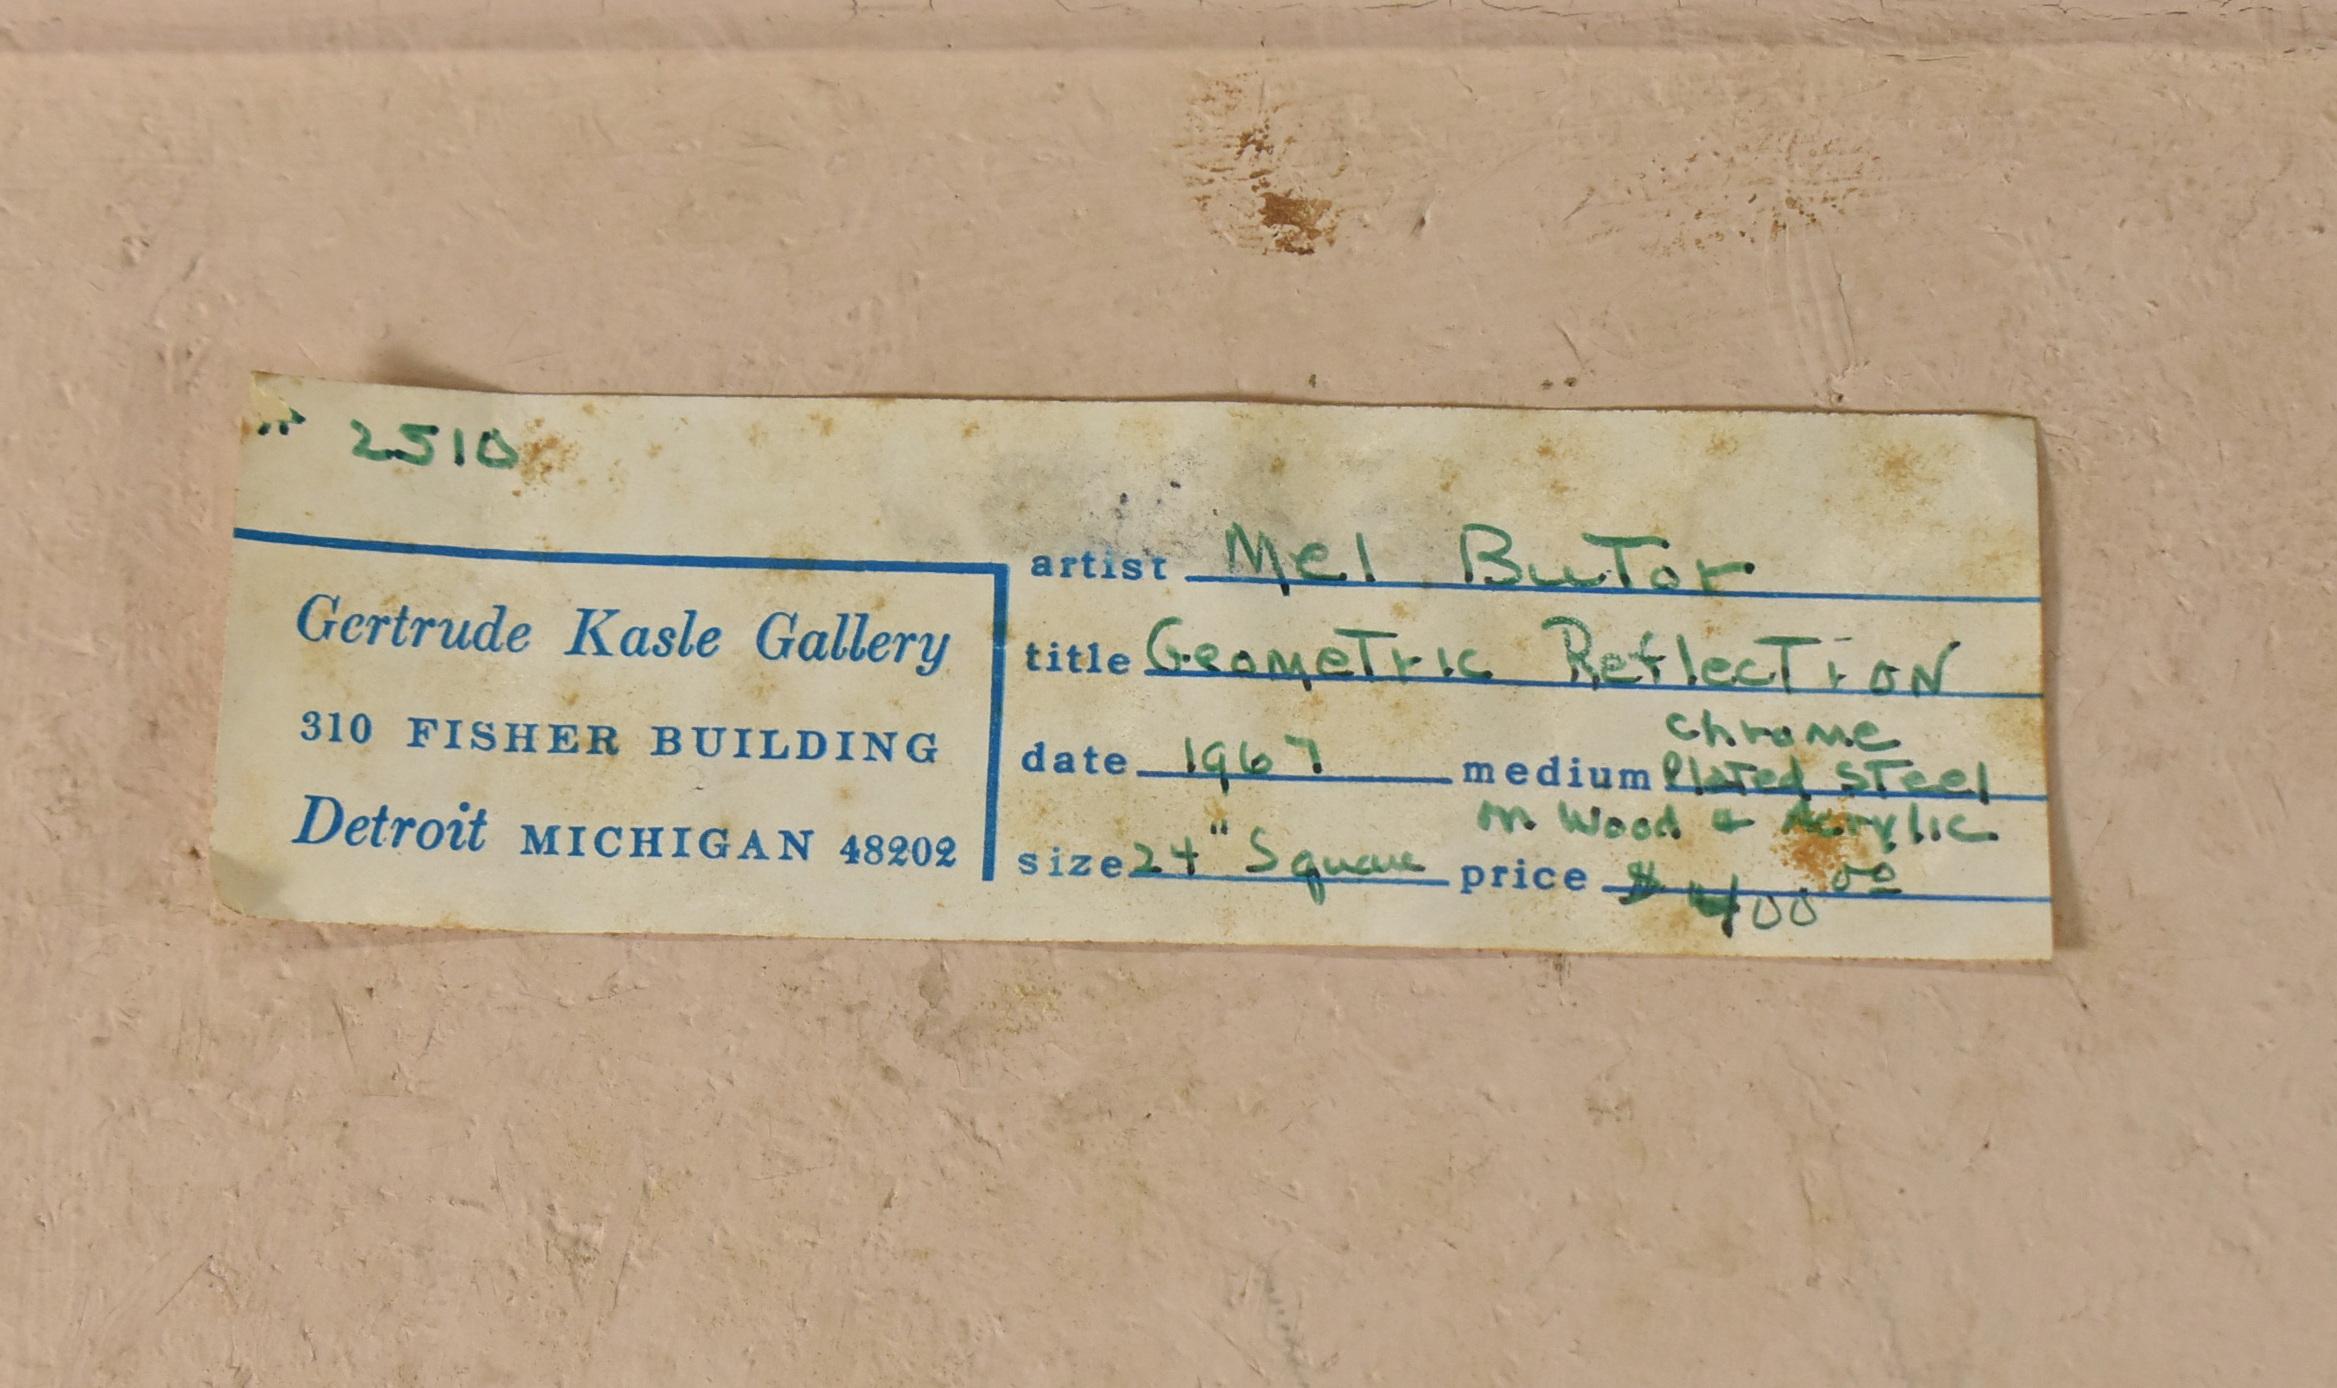 2510
Gertrude Kasle Gallery
310 FISHER BUILDING
Detroit MICHIGAN 48202
artist Mel Butor
title Geometric Reflection
date 1967 medium Chrome
Plated Steel
on Wood & Acrylic
size 24" Square price $400.00